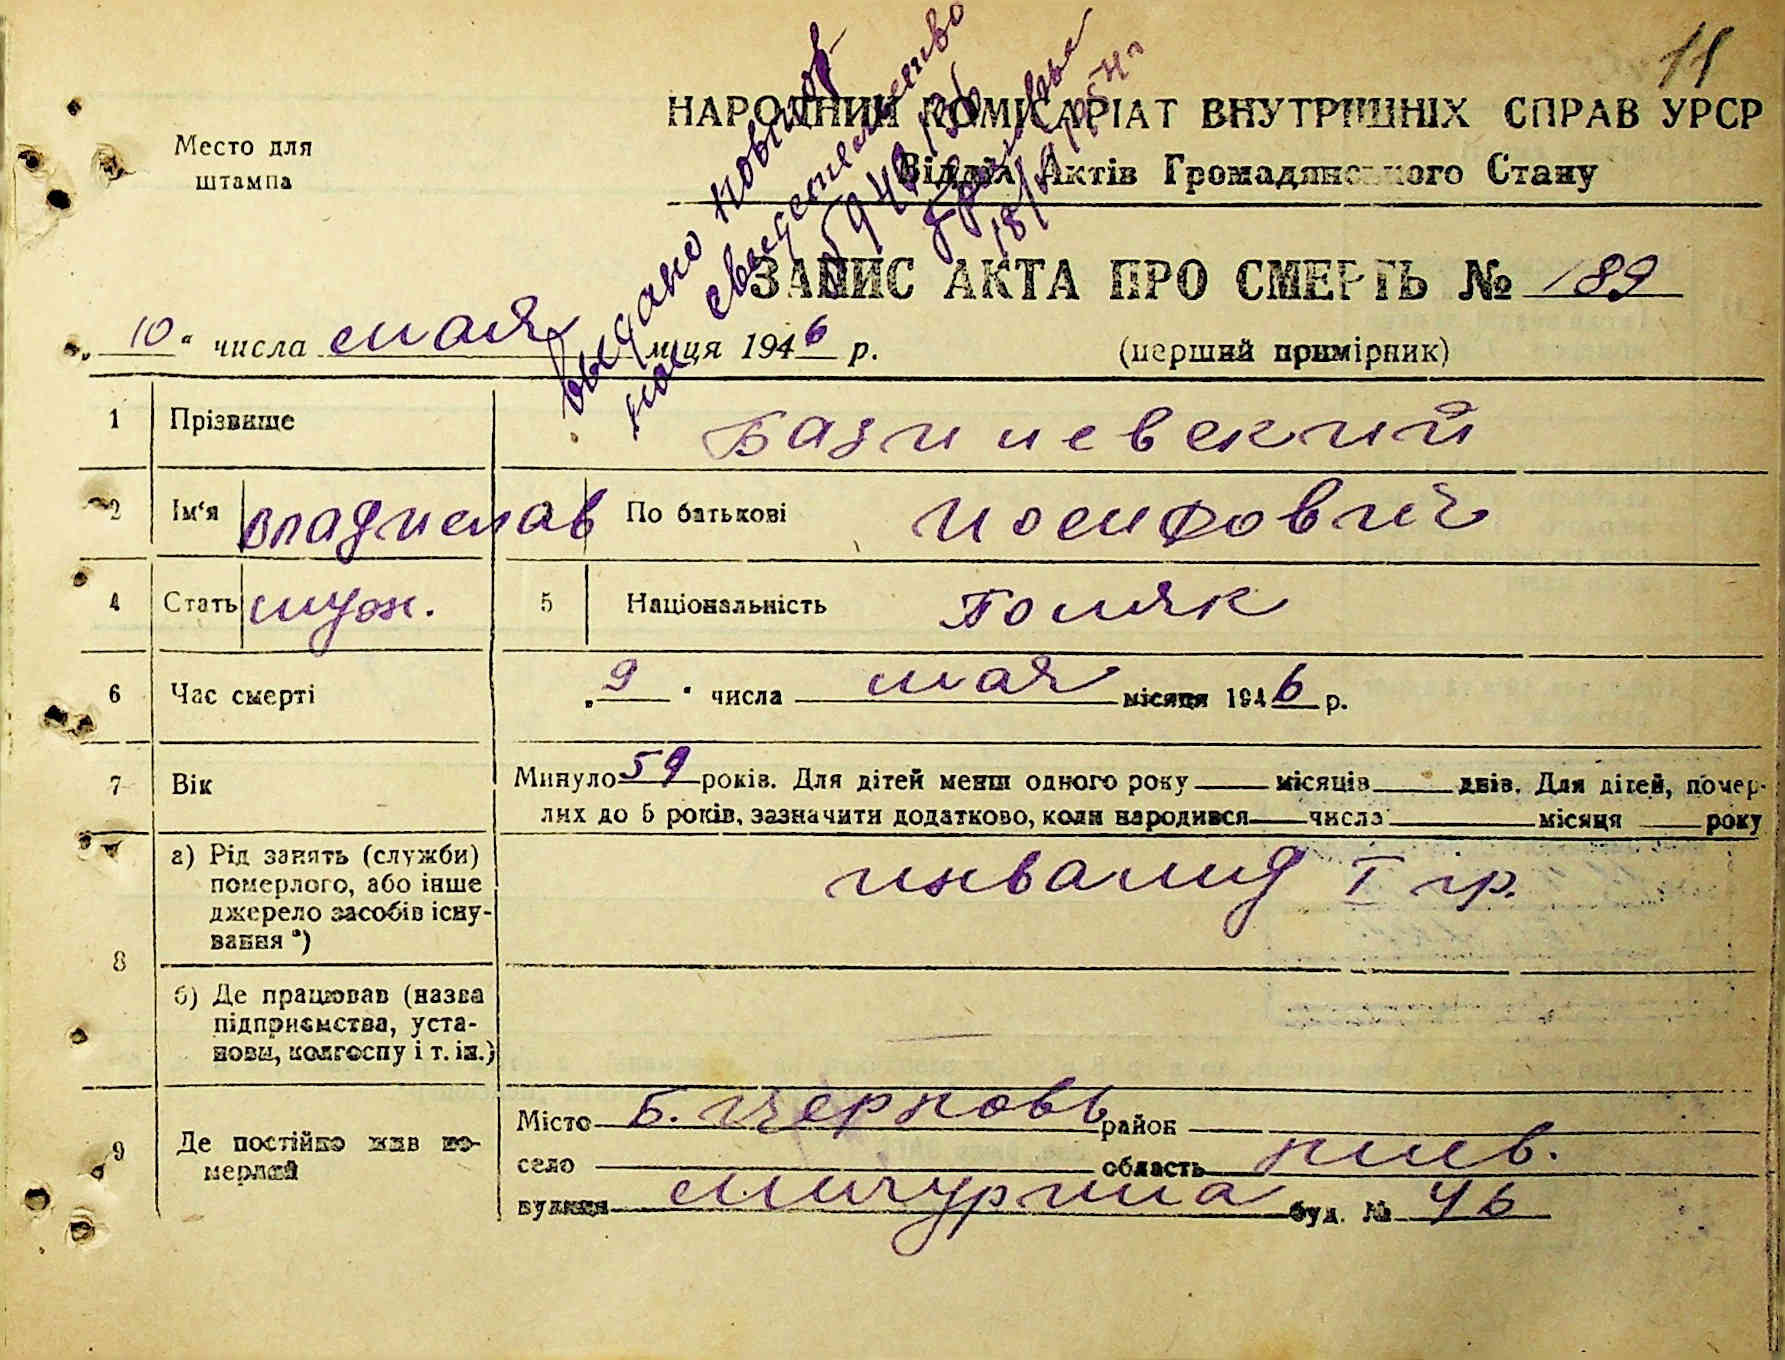 11
НАРОДНИЙ КОМІСАРІАТ ВНУТРІШНІХ СПРАВ УРСР
Відділ Актів Громадянського Стану
Место для
штампа
выдано повторное
свидетельство
18/
ЗАПИС АКТА ПРО СМЕРТЬ № 189
„10“ числа мая м-ця 1946 р. (перший примірник)
1 Прізвище Базилевский
2 Ім'я Владислав По батькові Иосифович
4 Стать муж. 5 Національність Поляк
6 Час смерті „9" числа мая місяця 1946 р.
7 Вік Минуло 59 років. Для дітей менш одного року місяців днів. Для дітей, помер-
лих до 5 років, зазначити додатково, коли народився числа місяця року
8 а) Рід занять (служби)
померлого, або інше
джерело засобів існу-
вання *)
инвалид I гр.
б) Де працював (назва
підприємства, уста-
нови, колгоспу і т. ін.)
9 Де постійно жив по-
мерлий
Місто Б. Церковь район
село область Киев.
вулиця Мичурина буд. № 46